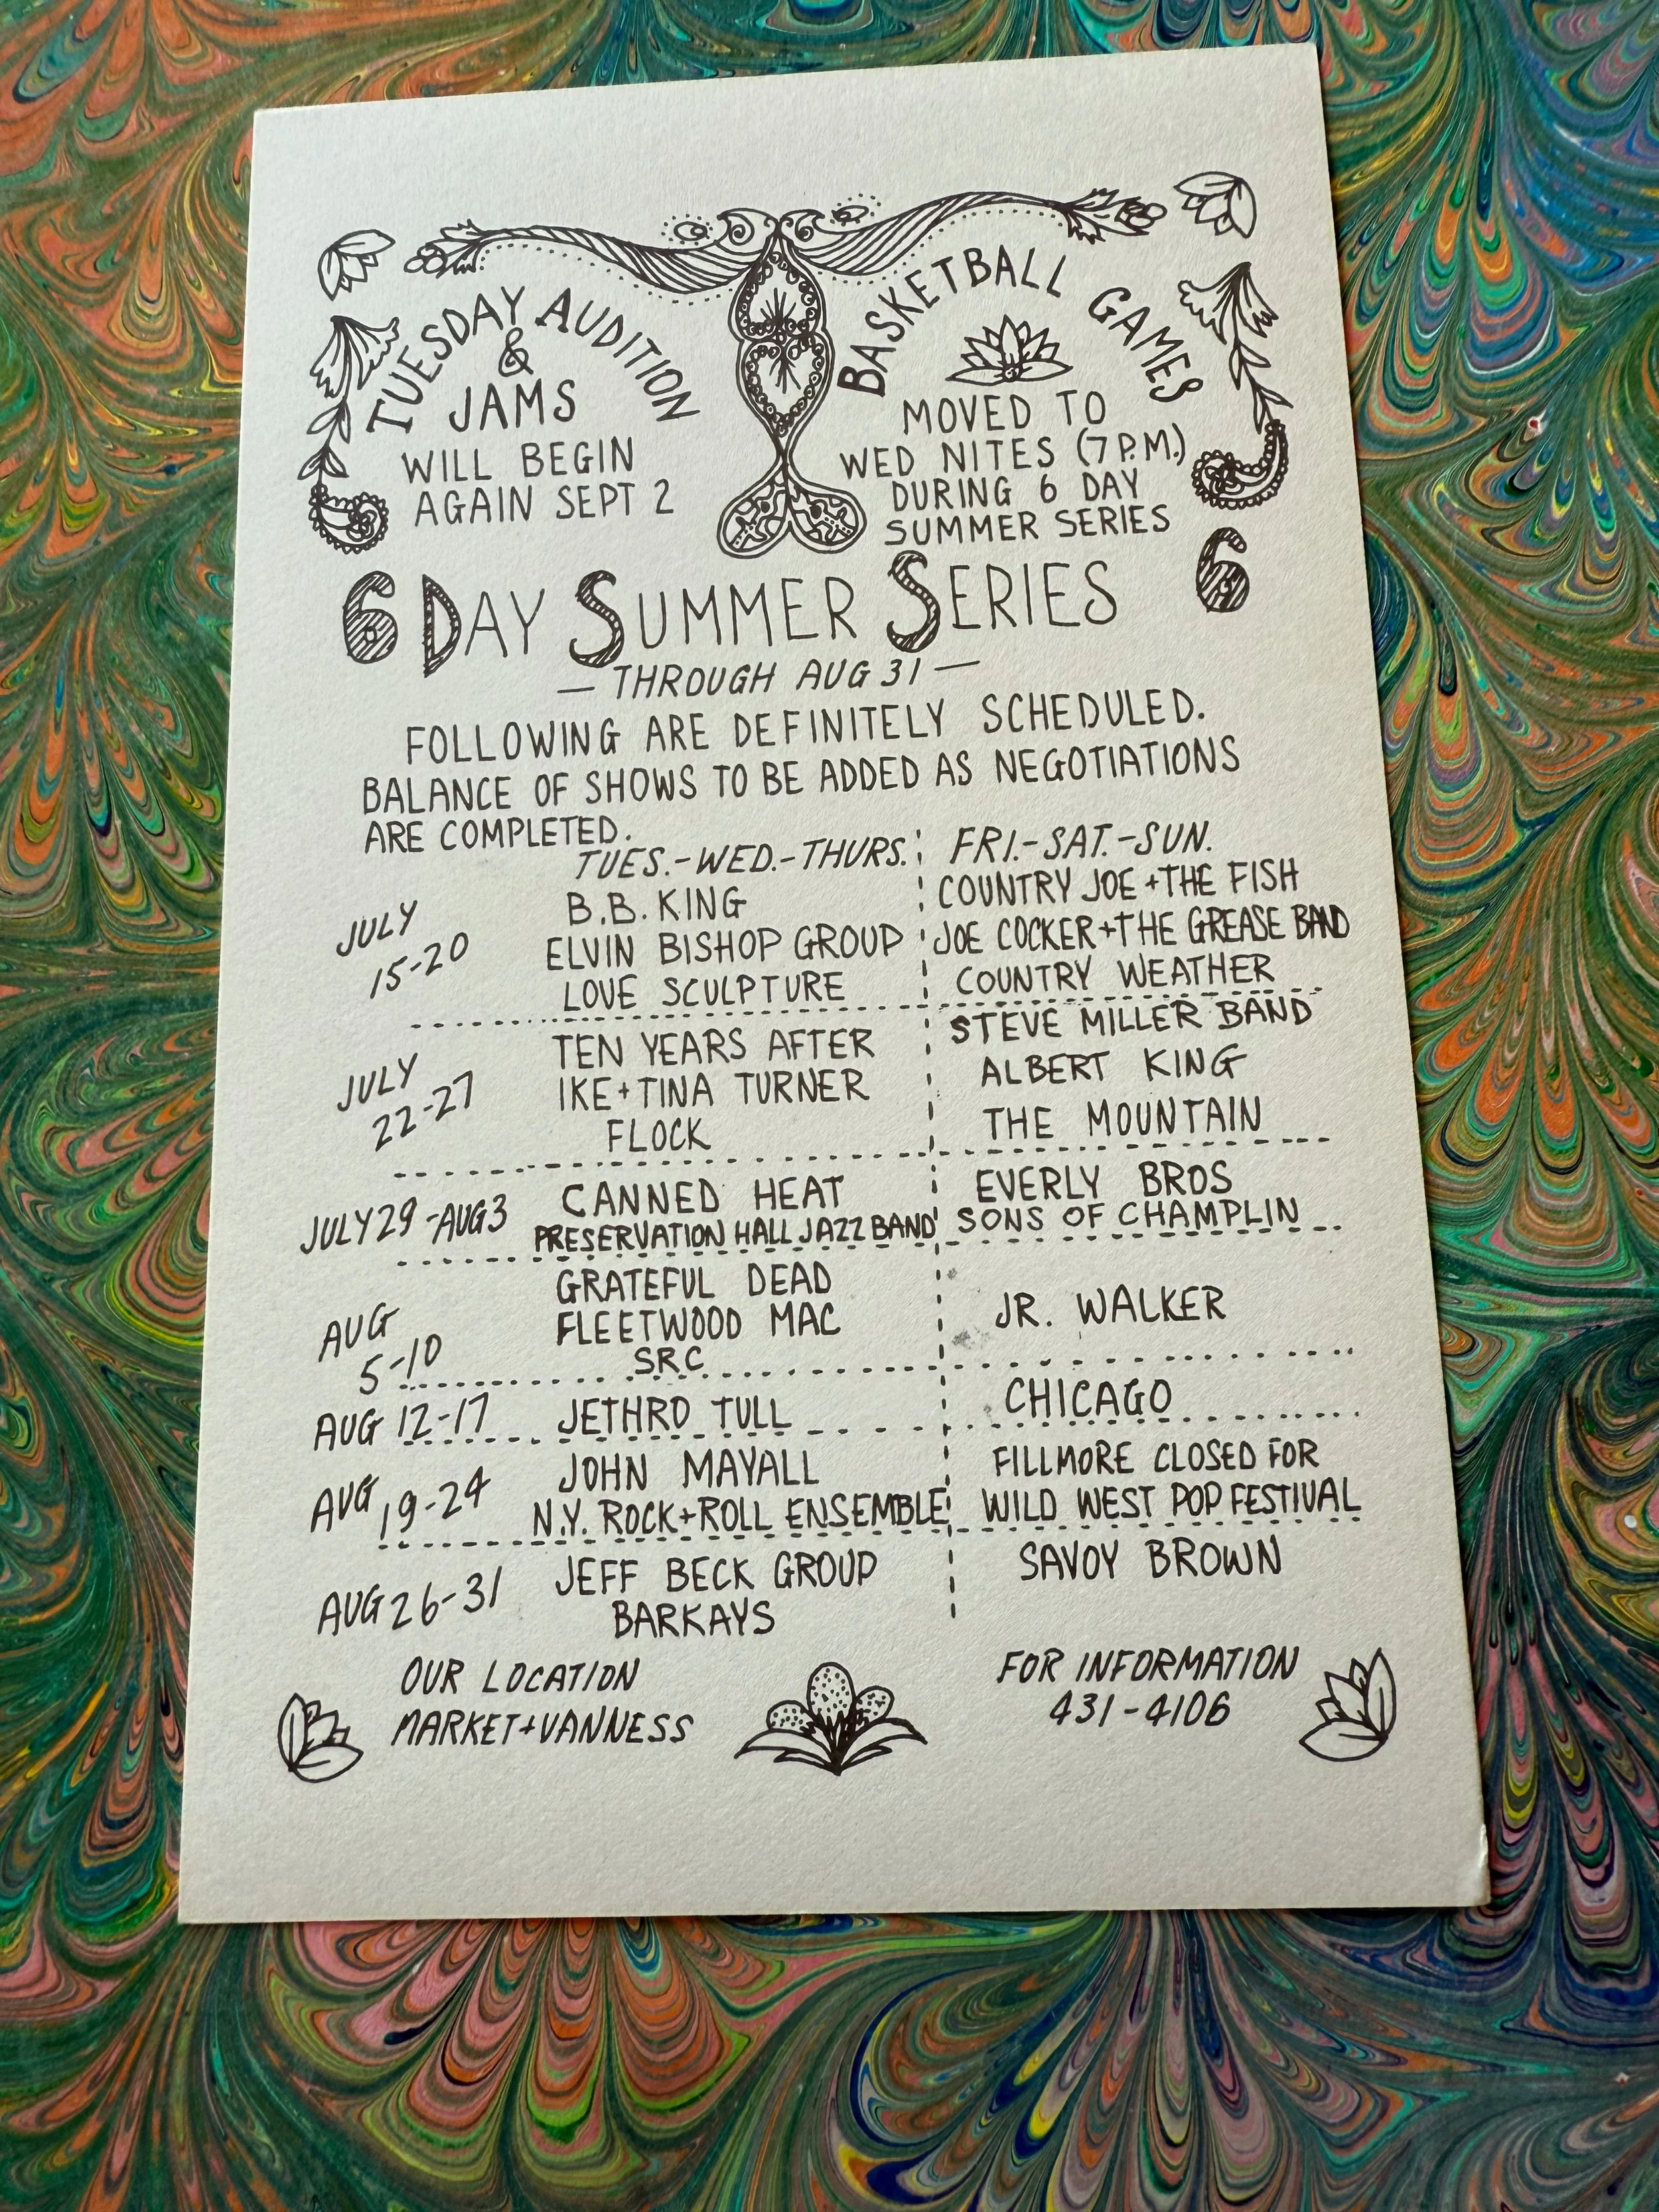 TUESDAY AUDITION
&
JAMS
WILL BEGIN
AGAIN SEPT 2
BASKETBALL GAMES
MOVED TO
WED NITES (7 P.M.)
DURING 6 DAY
SUMMER SERIES
6 DAY SUMMER SERIES 6
— THROUGH AUG 31 —
FOLLOWING ARE DEFINITELY SCHEDULED.
BALANCE OF SHOWS TO BE ADDED AS NEGOTIATIONS
ARE COMPLETED.
TUES.-WED.-THURS. FRI.-SAT.-SUN.
JULY
15-20
B.B. KING
ELVIN BISHOP GROUP
LOVE SCULPTURE
COUNTRY JOE + THE FISH
JOE COCKER + THE GREASE BAND
COUNTRY WEATHER
JULY
22-27
TEN YEARS AFTER
IKE + TINA TURNER
FLOCK
STEVE MILLER BAND
ALBERT KING
THE MOUNTAIN
JULY 29-AUG 3
CANNED HEAT
PRESERVATION HALL JAZZ BAND
EVERLY BROS
SONS OF CHAMPLIN
AUG
5-10
GRATEFUL DEAD
FLEETWOOD MAC
SRC
JR. WALKER
AUG 12-17
JETHRO TULL
CHICAGO
AUG 19-24
JOHN MAYALL
N.Y. ROCK + ROLL ENSEMBLE
FILLMORE CLOSED FOR
WILD WEST POP FESTIVAL
AUG 26-31
JEFF BECK GROUP
BARKAYS
SAVOY BROWN
OUR LOCATION
MARKET + VANNESS
FOR INFORMATION
431-4106